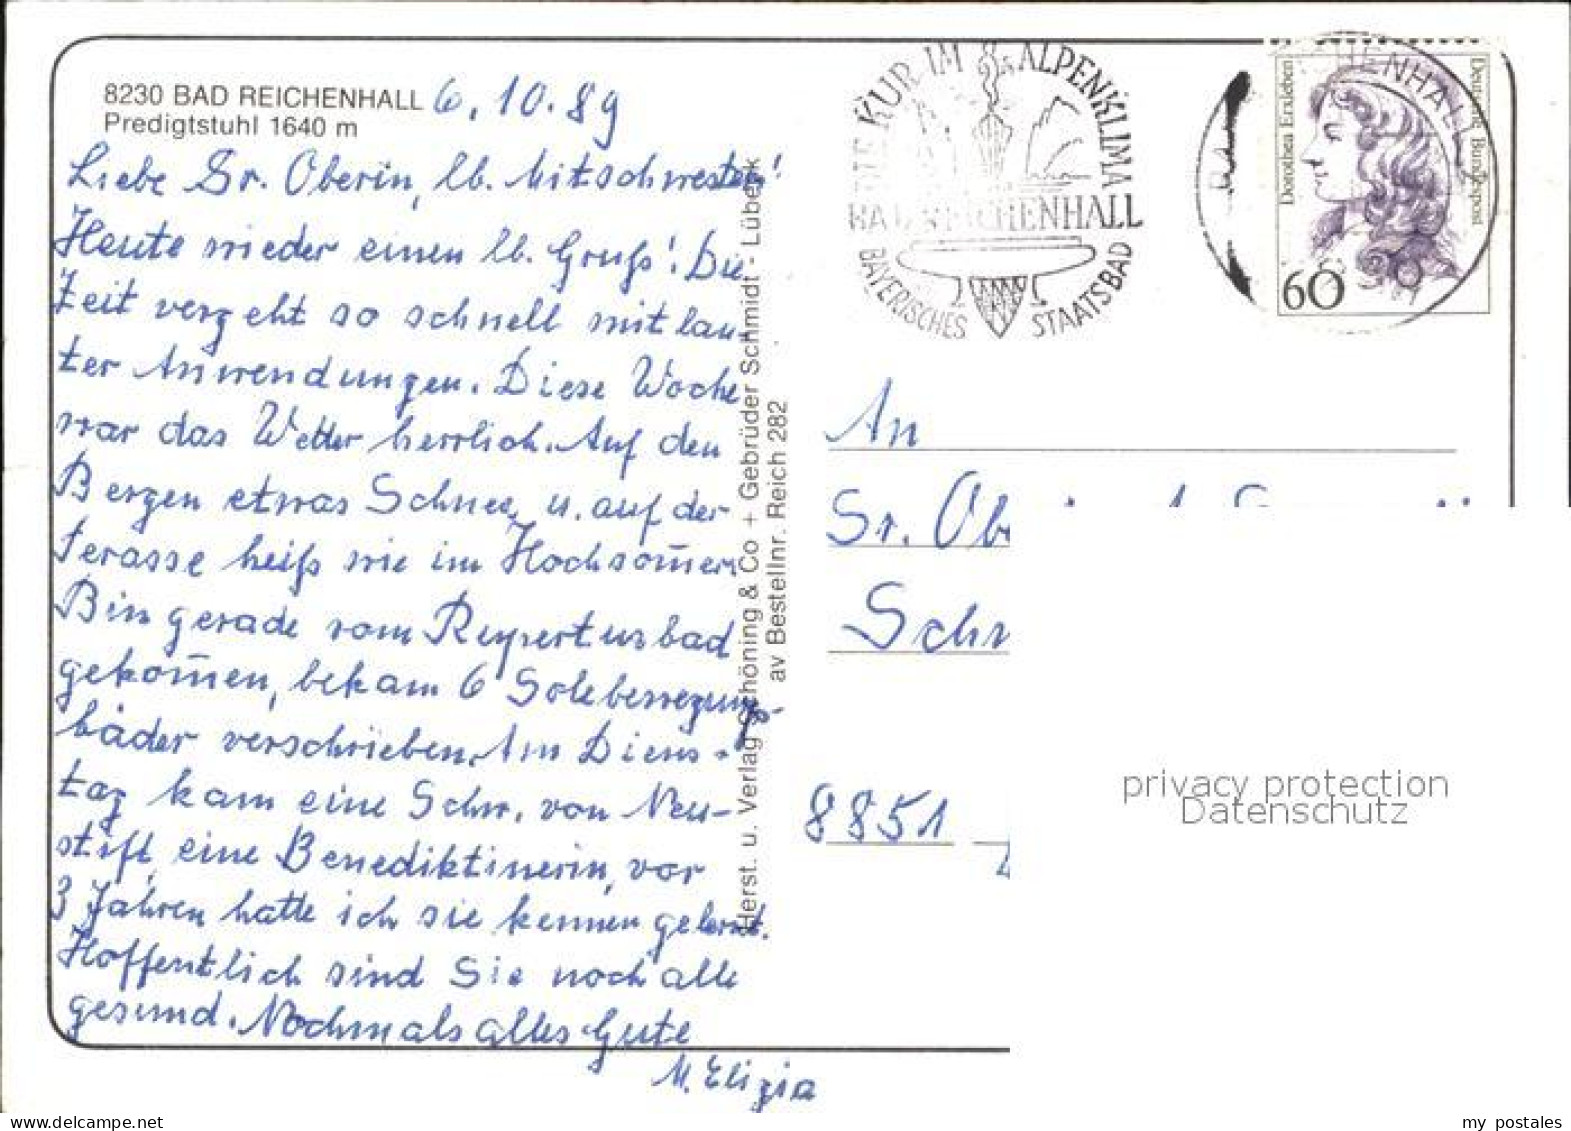 8230 BAD REICHENHALL 6.10.89
Predigtstuhl 1640 m
Liebe Sr. Oberin, lb. Mitschwestern!
Heute wieder einen lb. Gruß! Die
Zeit vergeht so schnell mit lau-
ter Anwendungen. Diese Woche
war das Wetter herrlich. Auf den
Bergen etwas Schnee, u. auf der
Terasse heiß wie im Hochsom̄er.
Bin gerade vom Rupertusbad
gekom̄en, bekam 6 Solebewegungs-
bäder verschrieben. Am Diens-
tag kam eine Schw. von Neu-
stift, eine Benediktinerin, vor
3 Jahren hatte ich sie kennen gelernt.
Hoffentlich sind Sie noch alle
gesund. Nochmals alles Gute
M. Elizia
Herst. u. Verlag Schöning & Co + Gebrüder Schmidt - Lübeck
av Bestellnr. Reich 282
DIE KUR IM ALPENKLIMA
BAD REICHENHALL
BAYERISCHES STAATSBAD
Dorothea Erxleben
Deutsche Bundespost
60
An
Sr. Ob
Schw
8851
privacy protection
Datenschutz
my postales